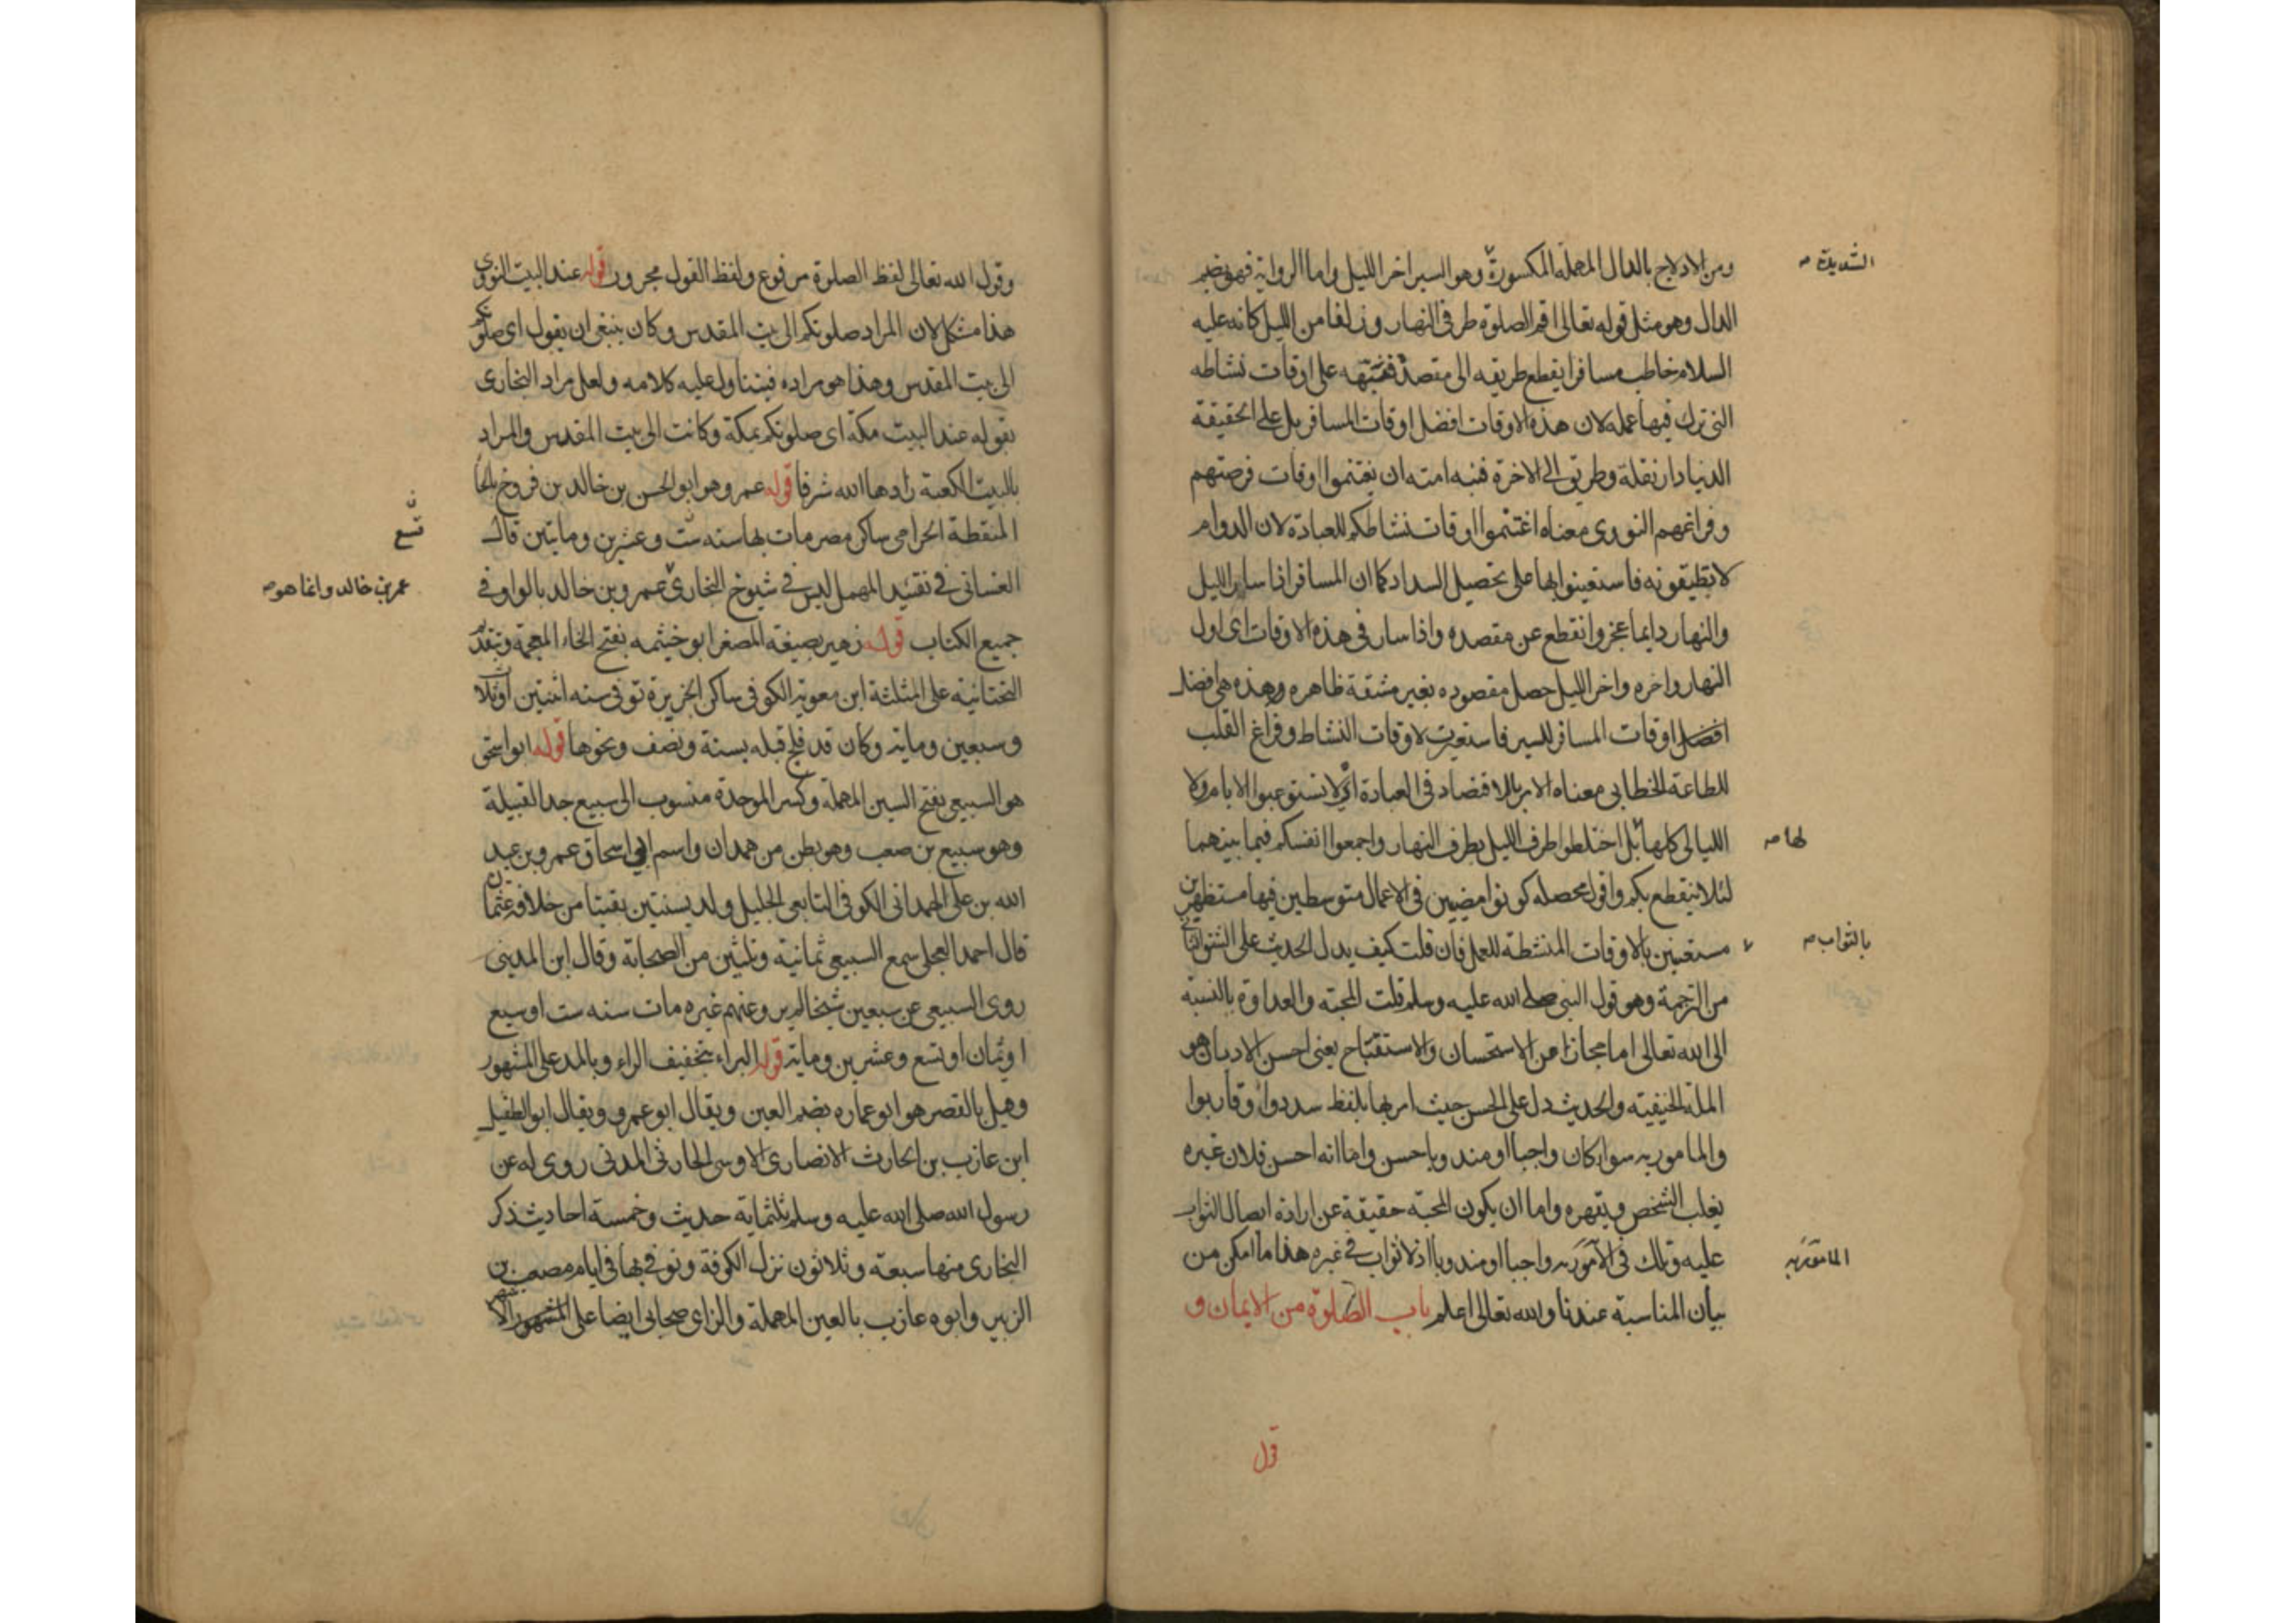 ومن الادلاج بالدال المهملة المكسورة وهو السير اخر الليل واما الرواية فهو بضم
الدال وهو مثل قوله تعالى اقم الصلوة طرفى النهار وزلفا من الليل كانه عليه
السلام خاطب مسافرا يقطع طريقه الى مقصده فنبهه على اوقات نشاطه
التى ترك فيها عمله لان هذه الاوقات افضل اوقات المسافر بل على الحقيقة
الدنيا دار نقلة وطريق الى الاخرة فنبه امته ان يغتنموا اوقات فرصتهم
وفراغهم النووى معناه اغتنموا اوقات نشاطكم للعبادة لان الدوام
لا تطيقونه فاستعينوا بها على تحصيل السداد كما ان المسافر اذا سار الليل
والنهار دايما عجز وانقطع عن مقصده واذا سار فى هذه الاوقات اى اول
النهار واخره واخر الليل حصل مقصوده بغير مشقة ظاهره وهذه هى افضل
افضل اوقات المسافر للسير فاستعيرت لاوقات النشاط وفراغ القلب
للطاعة الخطابى معناه الامر بالاقتصاد فى العبادة اى لا تستوعبوا الايام ولا
الليالى كلها بل اخلطوا طرف الليل بطرف النهار واجمعوا انفسكم فيما بينهما
لها
لئلا ينقطع بكم واقول محصله كونوا فى الاعمال متوسطين فيها مستظهرين
مستعينين بالاوقات المنشطة للعمل فان قلت كيف يدل الحديث على الشق الثانى
بالثواب
من الترجمة وهو قول النبى صلى الله عليه وسلم قلت المحبة والعداوة بالنسبة
الى الله تعالى اما مجاز عن الاستحسان والاستقباح يعنى احسن الاديان هو
الملة الحنيفية والحديث دل على الحسن حيث امر بها بلفظ سددوا وقاربوا
والمامور به سواء كان واجبا او مندوبا حسن واما انه احسن فلان غيره
يغلب الشخص ويقهره واما ان يكون المحبة حقيقة عن ارادة ايصال الثواب
عليه وذلك فى المامور به واجبا او مندوبا اذ لا ثواب فى غيره هذا ما امكن من
المامور به
بيان المناسبة عندنا والله تعالى اعلم باب الصلوة من الايمان و
قول
وقول الله تعالى لفظ الصلوة مرفوع ولفظ القول مجرور قوله عند البيت النووى
هذا مشكل لان المراد صلوتكم الى بيت المقدس وكان ينبغى ان يقول اى صلوتكم
الى بيت المقدس وهذا هو مراده فيتناول عليه كلامه ولعل مراد البخارى
بقوله عند البيت مكة اى صلوتكم بمكة وكانت الى بيت المقدس والمراد
بالبيت الكعبة زادها الله شرفا قوله عمرو هو ابو الحسن بن خالد بن فروخ بالخا
المنقطة الحرامى ساكن مصر مات بها سنه تسع وعشرين وماتين قال
الغسانى فى تقييد المهمل ليس فى شيوخ البخارى عمرو بن خالد بالواو فى
عمر بن خالد وانما هو
جميع الكتاب قوله زهير بصيغة المصغر ابو خيثمه بفتح الخاء المعجمة وتقديم
التحتانية على المثلثة ابن معوية الكوفى ساكن الجزيرة توفى سنه اثنتين او ثلاث
وسبعين وماية وكان قد فلج قبله بسنة ونصف ونحوها قوله ابو اسحق
هو السبيعى بفتح السين المهملة وكسر الموحدة منسوب الى سبيع جد القبيلة
وهو سبيع بن صعب وهو بطن من همدان واسم ابى اسحاق عمرو بن عبد
الله بن على الهمدانى الكوفى التابعى الجليل ولد بسنتين بقيتا من خلافة عثمان
قال احمد العجلى سمع السبيعى ثمانية وثلثين من الصحابة وقال ابن المدينى
روى السبيعى عن سبعين شيخا لم يرو عنهم غيره مات سنه ست او سبع
او ثمان او تسع وعشرين وماية قوله البراء بتخفيف الراء وبالمد على المشهور
وقيل بالقصر هو ابو عماره بضم العين ويقال ابو عمرو ويقال ابو الطفيل
ابن عازب بن الحارث الانصارى الاوسى الحارثى المدنى روى له عن
رسول الله صلى الله عليه وسلم ثلثماية حديث وخمسة احاديث ذكر
البخارى منها سبعة وثلاثون نزل الكوفة وتوفى بها فى ايام مصعب بن
الزبير وابوه عازب بالعين المهملة والزاى صحابى ايضا على المشهور